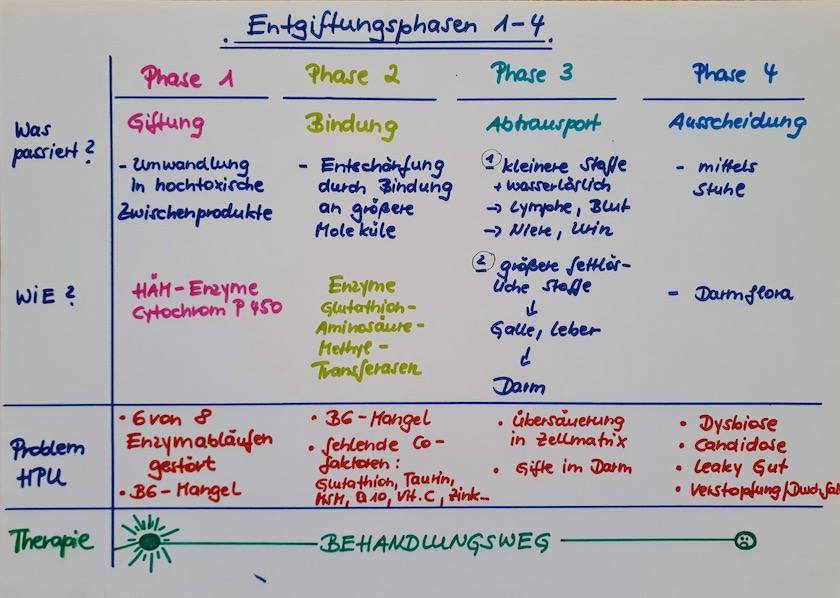 Entgiftungsphasen 1-4
Phase 1
Phase 2
Phase 3
Phase 4
Was
passiert?
Giftung
- Umwandlung
in hochtoxische
Zwischenprodukte
Bindung
- Entschärfung
durch Bindung
an größere
Moleküle
Abtransport
1 kleinere Stoffe
+ wasserlöslich
→ Lymphe, Blut
→ Niere, Urin
Ausscheidung
- mittels
Stuhl
WiE?
HÄM-Enzyme
Cytochrom P 450
Enzyme
Glutathion-
Aminosäure-
Methyl-
Transferasen
2 größere fettlös-
liche Stoffe
↓
Galle, Leber
↓
Darm
- Darmflora
Problem
HPU
• 6 von 8
Enzymabläufen
gestört
• B6-Mangel
• B6-Mangel
• fehlende Co-
faktoren:
Glutathion, Taurin,
MSM, Q10, Vit. C, Zink...
• Übersäuerung
in Zellmatrix
• Gifte im Darm
• Dysbiose
• Candidose
• Leaky Gut
• Verstopfung/Durchfall
Therapie
BEHANDLUNGSWEG